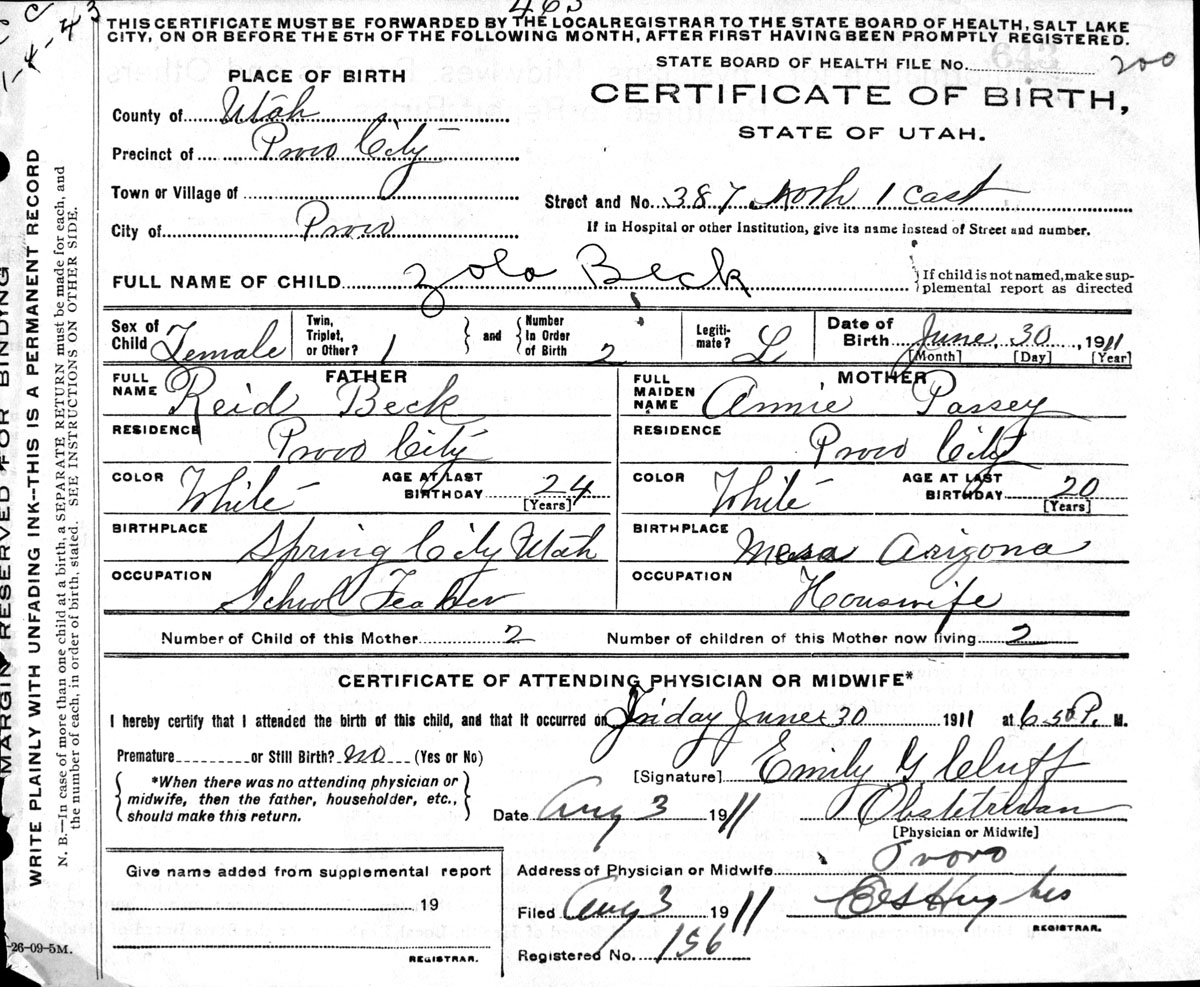 465
THIS CERTIFICATE MUST BE FORWARDED BY THE LOCAL REGISTRAR TO THE STATE BOARD OF HEALTH, SALT LAKE
CITY, ON OR BEFORE THE 5TH OF THE FOLLOWING MONTH, AFTER FIRST HAVING BEEN PROMPTLY REGISTERED.
1-4-43
STATE BOARD OF HEALTH FILE No. 643 200
PLACE OF BIRTH
CERTIFICATE OF BIRTH,
STATE OF UTAH.
County of Utah
Precinct of Provo City
Town or Village of
Street and No. 387 North 1 East
City of Provo
If in Hospital or other Institution, give its name instead of Street and number.
FULL NAME OF CHILD Zola Beck
If child is not named, make sup-
plemental report as directed
Sex of Child Female
Twin, Triplet, or Other? 1
and
Number In Order of Birth 2
Legiti-mate? L
Date of Birth June 30, 1911
[Month] [Day] [Year]
FATHER
FULL NAME Reid Beck
RESIDENCE Provo City
COLOR White
AGE AT LAST BIRTHDAY 24
[Years]
BIRTHPLACE Spring City Utah
OCCUPATION School Teacher
MOTHER
FULL MAIDEN NAME Annie Passey
RESIDENCE Provo City
COLOR White
AGE AT LAST BIRTHDAY 20
[Years]
BIRTHPLACE Mesa Arizona
OCCUPATION Houswife
Number of Child of this Mother 2
Number of children of this Mother now living 2
CERTIFICATE OF ATTENDING PHYSICIAN OR MIDWIFE*
I hereby certify that I attended the birth of this child, and that it occurred on Friday June 30 1911 at 6.50 P. M.
Premature or Still Birth? no (Yes or No)
*When there was no attending physician or
midwife, then the father, householder, etc.,
should make this return.
[Signature] Emily G Cluff
Date Aug 3 1911
Obstetrician
[Physician or Midwife]
Address of Physician or Midwife Provo
Filed Aug 3 1911 Hughes
REGISTRAR.
Registered No. 156
Give name added from supplemental report
19
REGISTRAR.
MARGIN RESERVED FOR BINDING
WRITE PLAINLY WITH UNFADING INK--THIS IS A PERMANENT RECORD
N. B.—In case of more than one child at a birth, a SEPARATE RETURN must be made for each, and
the number of each, in order of birth, stated. SEE INSTRUCTIONS ON OTHER SIDE.
-26-09-5M.